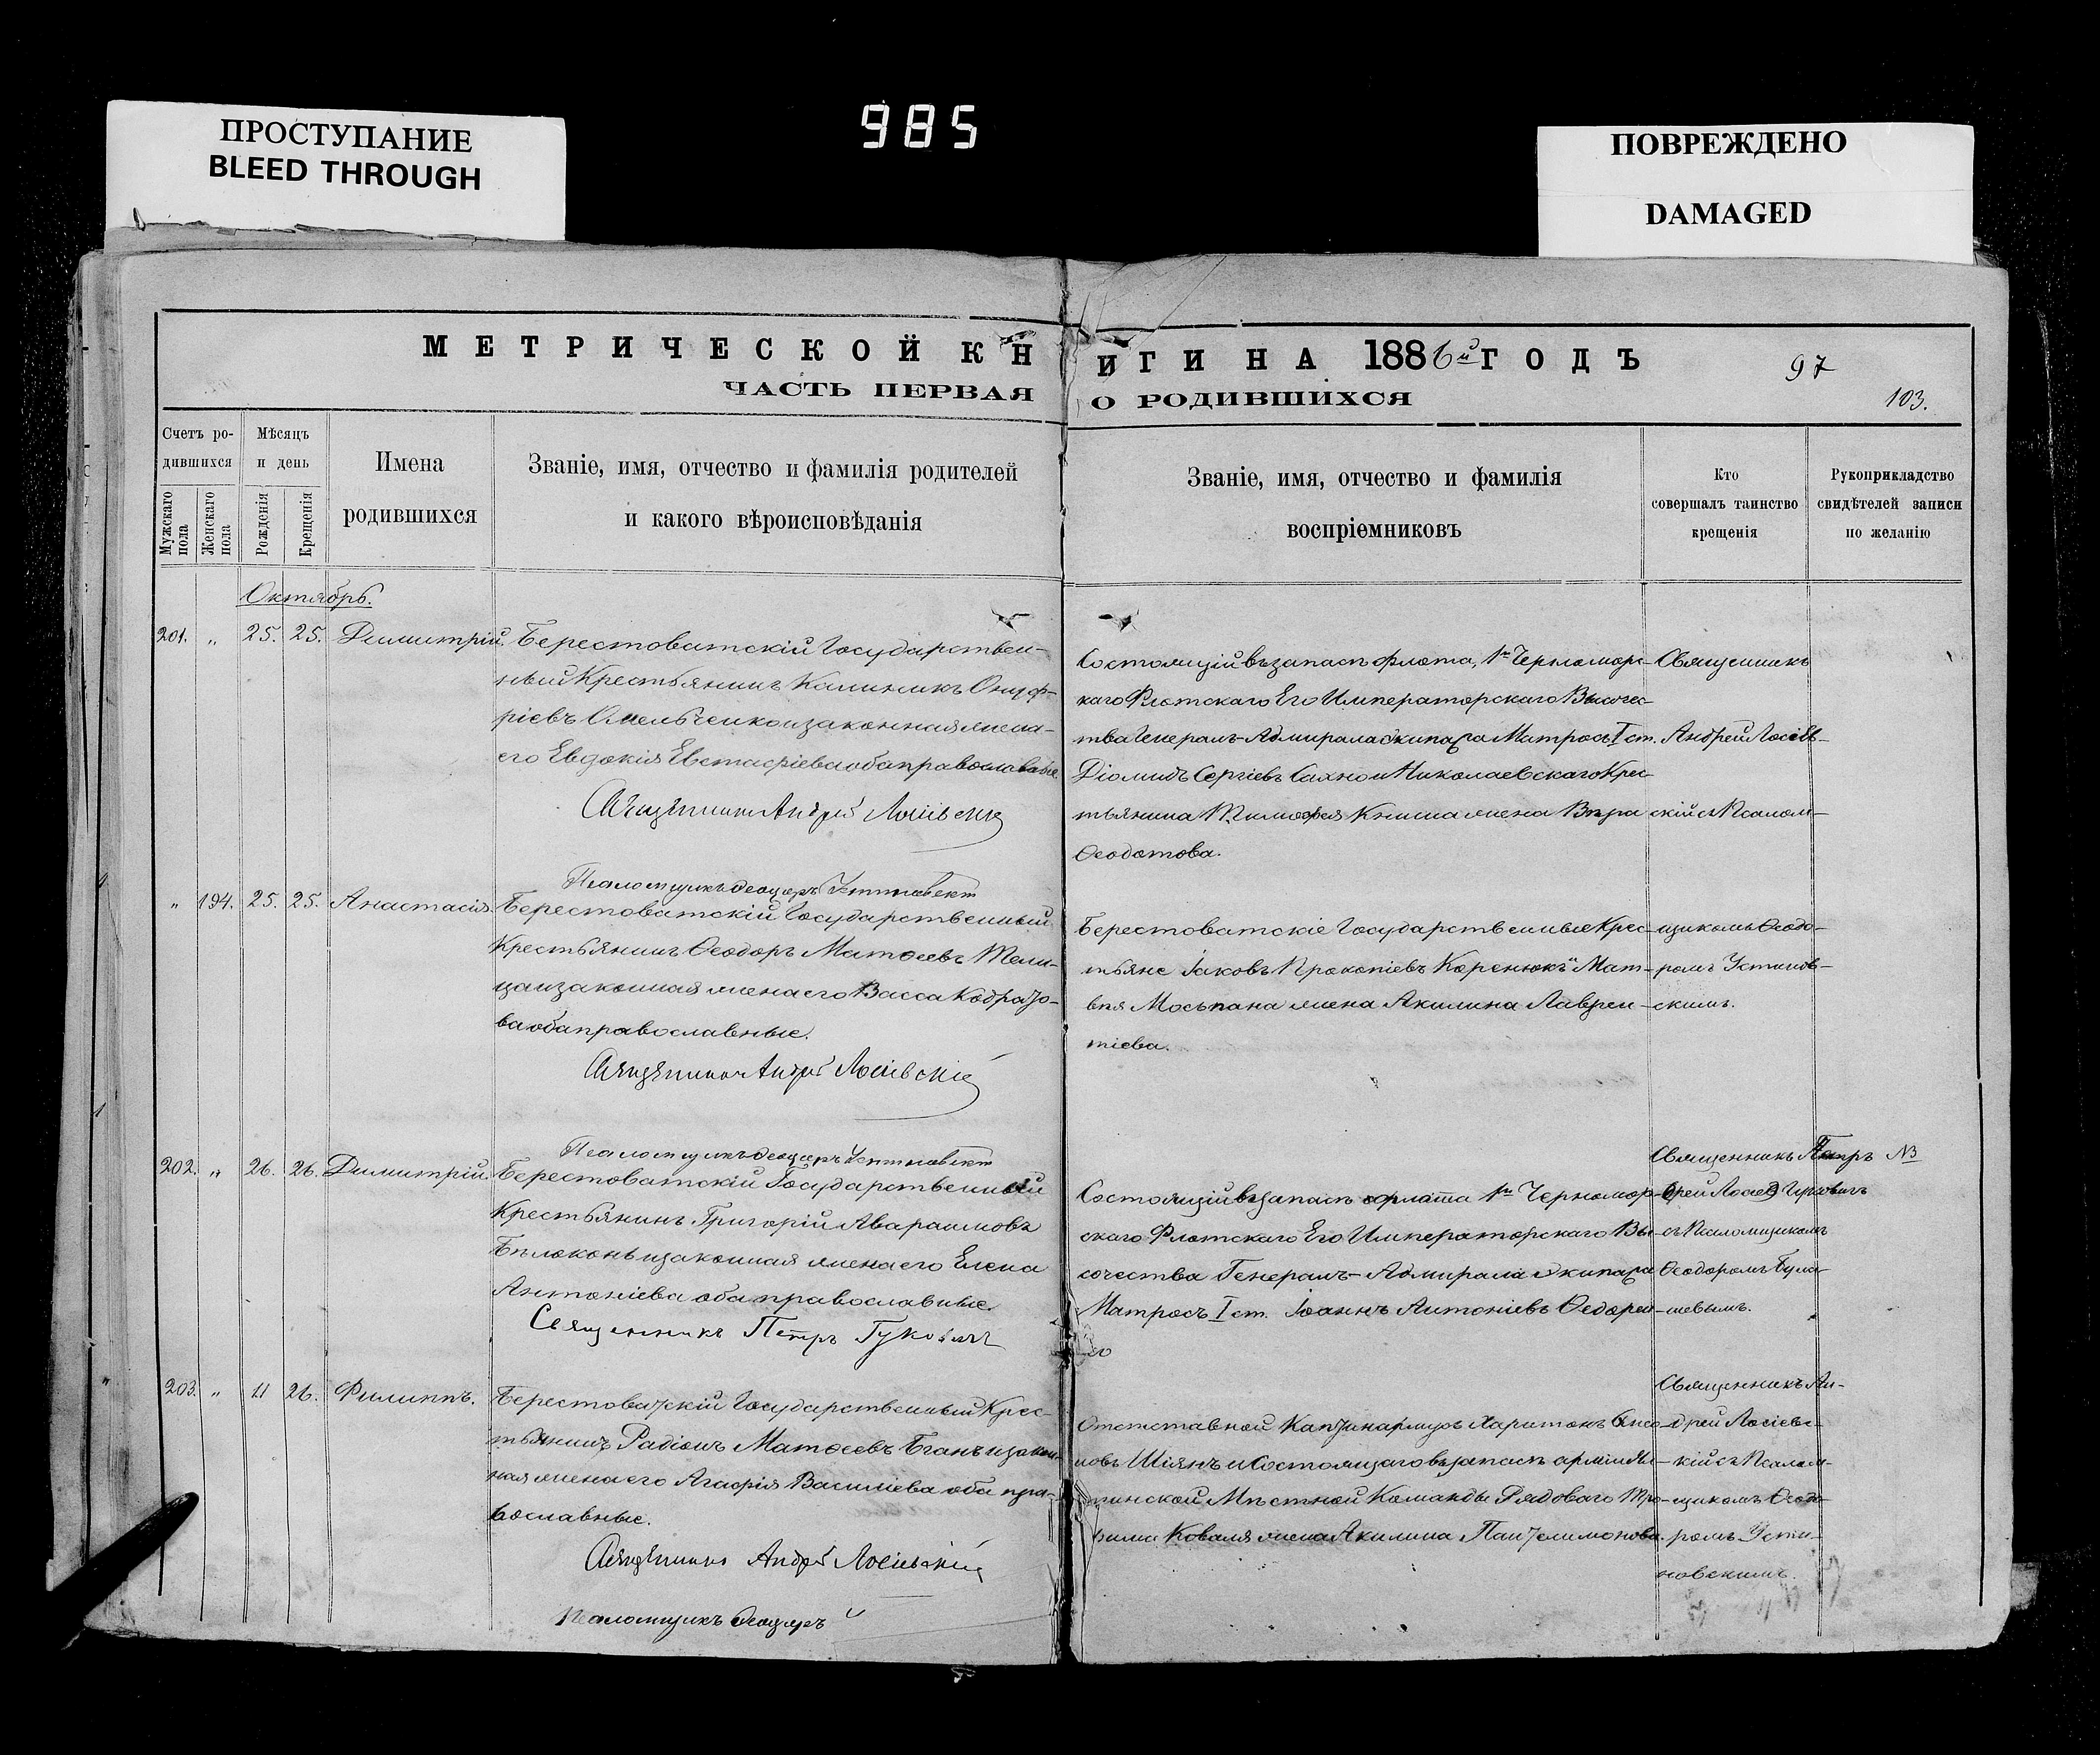 ПРОСТУПАНИЕ
BLEED THROUGH
985
ПОВРЕЖДЕНО
DAMAGED
МЕТРИЧЕСКОЙ КНИГИ НА 1886й ГОДЪ
97
ЧАСТЬ ПЕРВАЯ О РОДИВШИХСЯ
103.
Счетъ ро-
дившихся
Мужскаго пола
Женскаго пола
Мѣсяцъ
и день
Рожденія
Крещенія
Имена
родившихся
Званіе, имя, отчество и фамилія родителей
и какого вѣроисповѣданія
Званіе, имя, отчество и фамилія
воспріемниковъ
Кто
совершалъ таинство
крещенія
Рукоприкладство
свидѣтелей записи
по желанію
Октябрь.
201. „ 25. 25. Димитрій.
Берестоватскій Государствен-
ный Крестьянинъ Калиникъ Онуф-
ріевъ Омельченко и законная жена
его Евдокія Евстафіева оба православные.
Священникъ Андрей Лосіевскій
Псаломщикъ Ѳеодоръ
Состоящій въ запасѣ флота, 1го Черномор-
каго Флотскаго Его Императорскаго Высочес-
тва Генералъ-Адмирала экипажа Матросъ I ст.
Діомидъ Сергіевъ Сахно и Николаевскаго Крес-
тьянина Тимофея Книша жена Вѣра
Ѳеодотова.
Священникъ
Андрей Лосіев-
скій съ Псалом-
щикомъ Ѳеодо-
ромъ Устинов-
скимъ.
„ 194. 25. 25. Анастасія.
Берестоватскій Государственный
Крестьянинъ Ѳеодоръ Матѳеевъ Тели-
ца и законная жена его Васса Кодрато-
ва оба православные.
Священникъ Андрей Лосіевскій
Псаломщикъ Ѳеодоръ
Берестоватскіе Государственные Крес-
тьяне Іаковъ Прокопіевъ Коренюкъ и Мат-
вѣя Мосьпана жена Акилина Лаврен-
тіева.
202. „ 26. 26. Димитрій.
Берестоватскій Государственный
Крестьянинъ Григорій Авраамовъ
Бѣлоконь и законная жена его Елена
Антоніева оба православные.
Священникъ Петръ Гуковичъ
Состоящій въ запасѣ флота 1го Черномор-
скаго Флотскаго Его Императорскаго Вы-
сочества Генералъ-Адмирала экипажа
Матросъ I ст. Іоаннъ Антоніевъ Ѳедорен-
ко
Священникъ Петръ
съ Псаломщикомъ
Ѳеодоромъ
№
203. „ 11 26. Филиппъ.
Берестоватскій Государственный Крес-
тьянинъ Радіонъ Матѳеевъ Бганъ и закон-
ная жена его Агафія Василіева оба пра-
вославные.
Священникъ Андрей Лосіевскій
Псаломщикъ Ѳеодоръ
Отставной Каптинармусъ Харитонъ
Шіянъ и Состоящаго въ запасѣ арміи
Мѣстной Команды Рядоваго Тро-
фима Коваля жена Акилина Пантелимонова.
Священникъ Ан-
дрей Лосіевс-
кій съ Псалом-
щикомъ Ѳеодо-
ромъ Усти-
новскимъ.